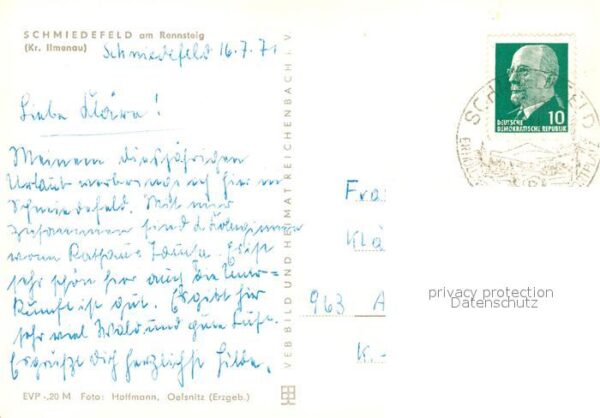 SCHMIEDEFELD am Rennsteig
(Kr. Ilmenau)
Schmiedefeld 16.7.71
Liebe Klära!
Meinen diesjährigen
Urlaub verbringe ich hier in
Schmiedefeld. Mit mir
zusammen sind 2 Kolleginnen
vom Rathaus. Es ist
sehr schön hier auch die Unter=
kunft ist gut. Es gibt hier
sehr viel Wald und gute Luft.
Es grüßt Dich herzlichst Hilde.
EVP -,20 M Foto: Hoffmann, Oelsnitz (Erzgeb.)
VEB BILD UND HEIMAT REICHENBACH I. V.
10
DEUTSCHE
DEMOKRATISCHE REPUBLIK
Fra
Klä
963 A
K.-
privacy protection
Datenschutz